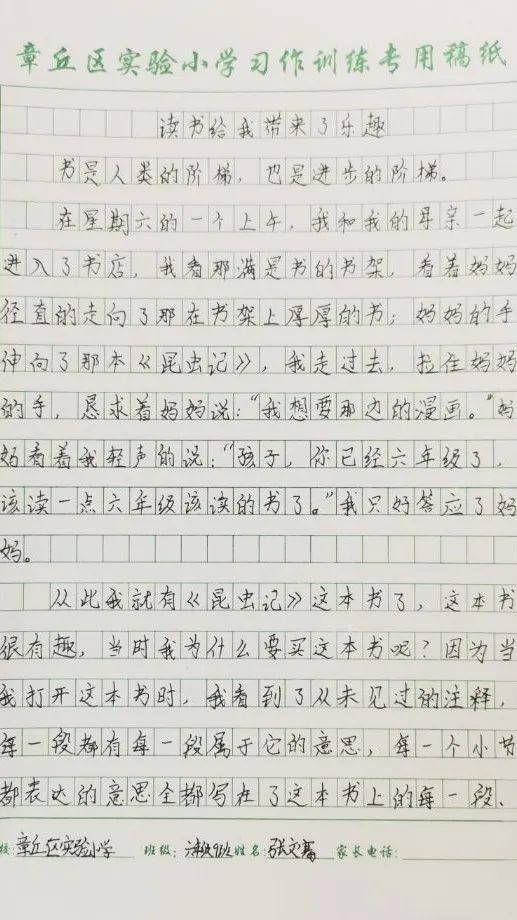 章丘区实验小学习作训练专用稿纸
读书给我带来了乐趣
书是人类的阶梯，也是进步的阶梯。
在星期六的一个上午，我和我的母亲一起
进入了书店，我看那满是书的书架，看着妈妈
径直的走向了那在书架上厚厚的书；妈妈的手
伸向了那本《昆虫记》，我走过去，拉住妈妈
的手，恳求着妈妈说：“我想要那边的漫画。”妈
妈看着我轻声的说：“孩子，你已经六年级了，
该读一点六年级该读的书了。”我只好答应了妈
妈。
从此我就有《昆虫记》这本书了，这本书
很有趣，当时我为什么要买这本书呢？因为当
我打开这本书时，我看到了从未见过的注释，
每一段都有每一段属于它的意思，每一个小节
都表达的意思全都写在了这本书上的每一段、
校：章丘区实验小学 班级： 姓名：张文 家长电话：